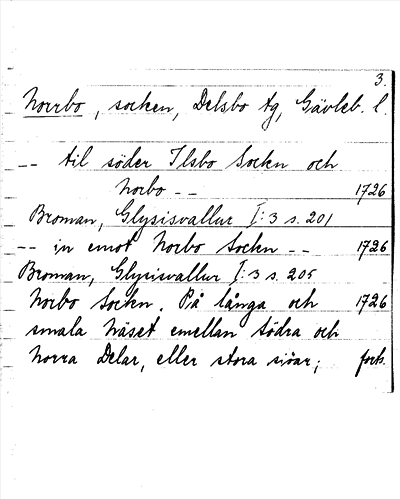 3.
Norrbo, socken, Delsbo tg, Gävleb. l.
-- til söder Ilsbo Sockn och
Norbo -- 1726
Broman, Glysisvallur I:3 s. 201
-- in emot Norbo Sockn -- 1726
Broman, Glysisvallur I:3 s. 205
Norbo Sockn. På långa och 1726
smala Näset emellan Södra och
Norra Delar, eller stora siöar; forts.